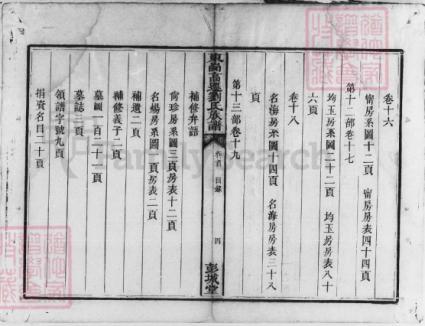 卷十六
甯房系圖十二頁　甯房房表四十四頁
第十二部卷十七
均玉房系圖二十二頁　均玉房房表八十
六頁
卷十八
名海房系圖十四頁　名海房房表三十八
頁
第十三部卷十九
氏族譜
卷首　目錄
四
彭城堂
補修弁語
尙珍房系圖三頁房表十二頁
名煬房系圖一頁房表二頁
補遺二頁
補修義子二頁
墓圖一百二十二頁
墓誌三頁
領譜字號九頁
捐資名目二十頁
FamilySearch